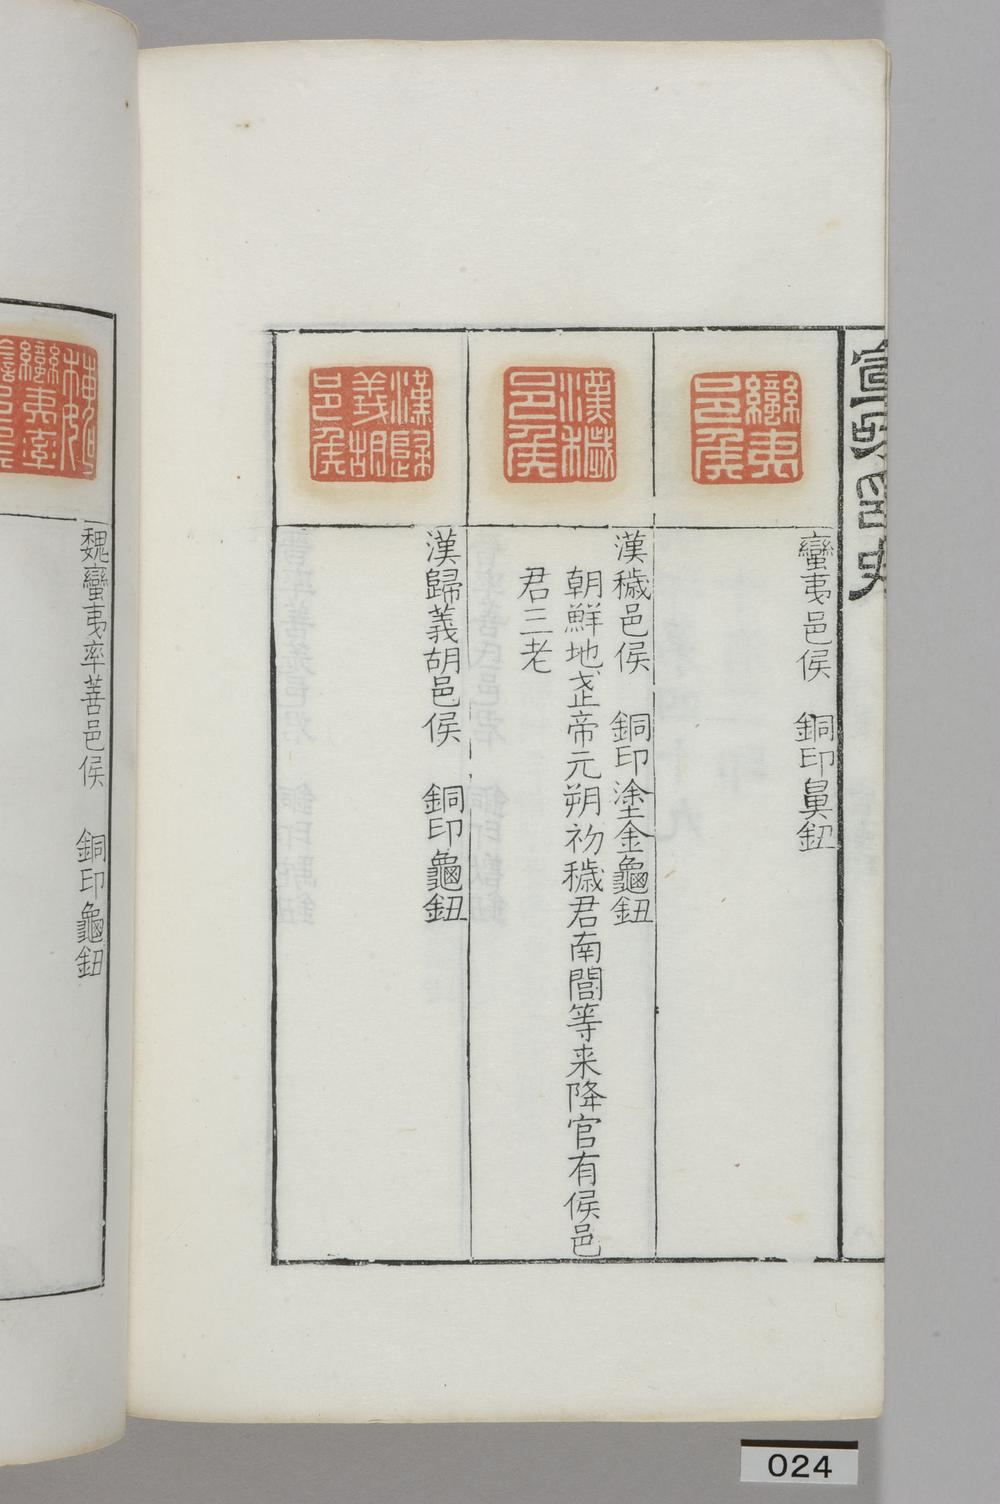 宣和印史
蠻夷邑侯
蠻夷邑侯 銅印鼻鈕
漢穢邑侯
漢穢邑侯 銅印塗金龜鈕
朝鮮地武帝元朔初穢君南閭等来降官有侯邑
君三老
漢歸義胡邑侯
漢歸義胡邑侯 銅印龜鈕
魏蠻夷率善邑侯
魏蠻夷率善邑侯 銅印龜鈕
024